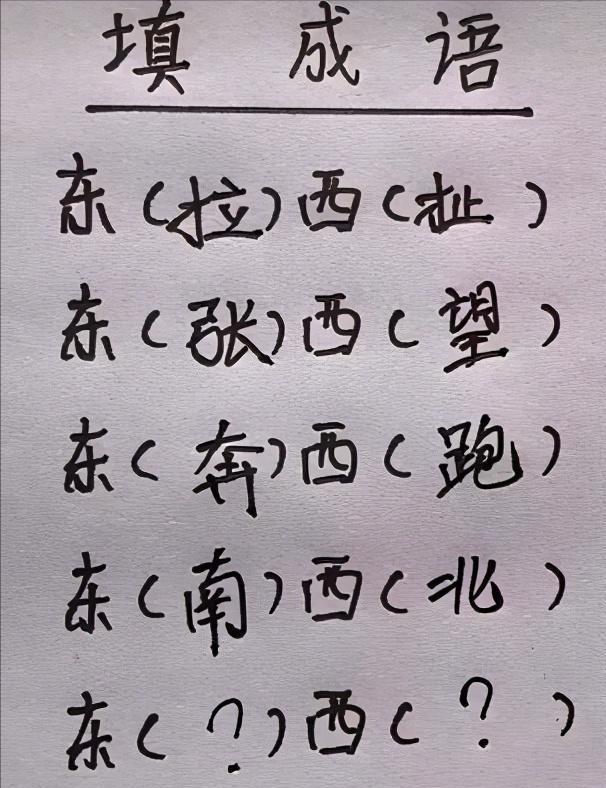 填 成 语
东(拉)西(扯)
东(张)西(望)
东(奔)西(跑)
东(南)西(北)
东(?)西(?)